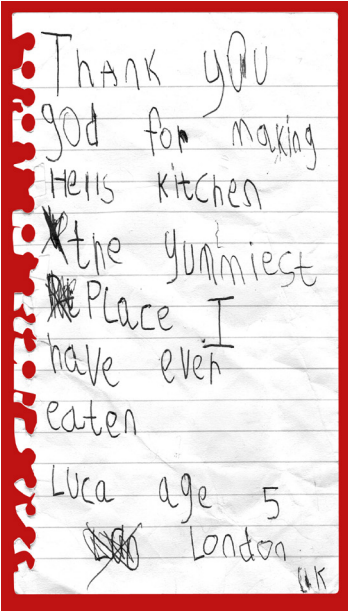 Thank you
god for making
Hells kitchen
the yummiest
Place I
have ever
eaten
Luca age 5
London
UK